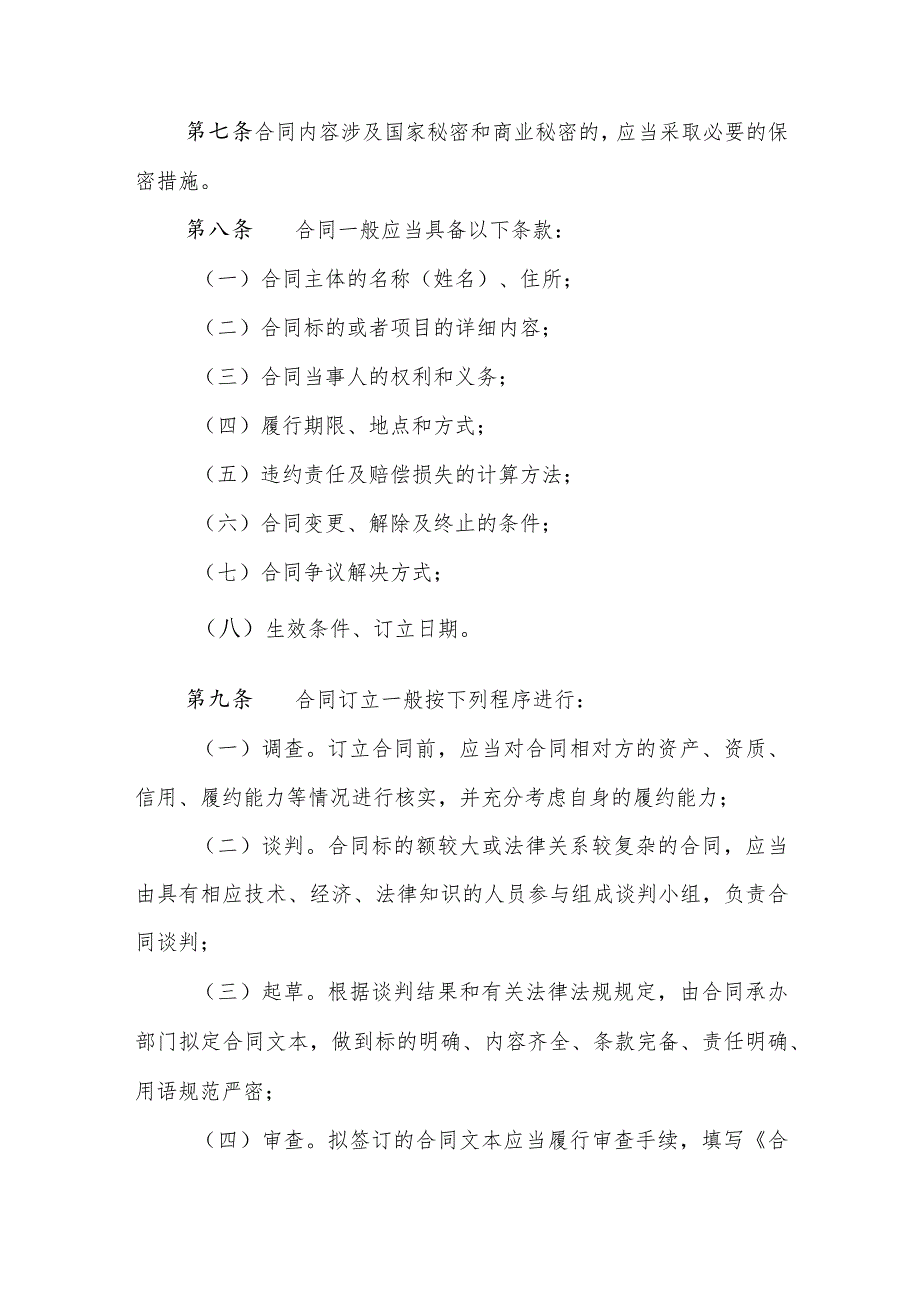 第七条合同内容涉及国家秘密和商业秘密的，应当采取必要的保
密措施。
第八条 合同一般应当具备以下条款：
（一）合同主体的名称（姓名）、住所；
（二）合同标的或者项目的详细内容；
（三）合同当事人的权利和义务；
（四）履行期限、地点和方式；
（五）违约责任及赔偿损失的计算方法；
（六）合同变更、解除及终止的条件；
（七）合同争议解决方式；
（八）生效条件、订立日期。
第九条 合同订立一般按下列程序进行：
（一）调查。订立合同前，应当对合同相对方的资产、资质、
信用、履约能力等情况进行核实，并充分考虑自身的履约能力；
（二）谈判。合同标的额较大或法律关系较复杂的合同，应当
由具有相应技术、经济、法律知识的人员参与组成谈判小组，负责合
同谈判；
（三）起草。根据谈判结果和有关法律法规规定，由合同承办
部门拟定合同文本，做到标的明确、内容齐全、条款完备、责任明确、
用语规范严密；
（四）审查。拟签订的合同文本应当履行审查手续，填写《合